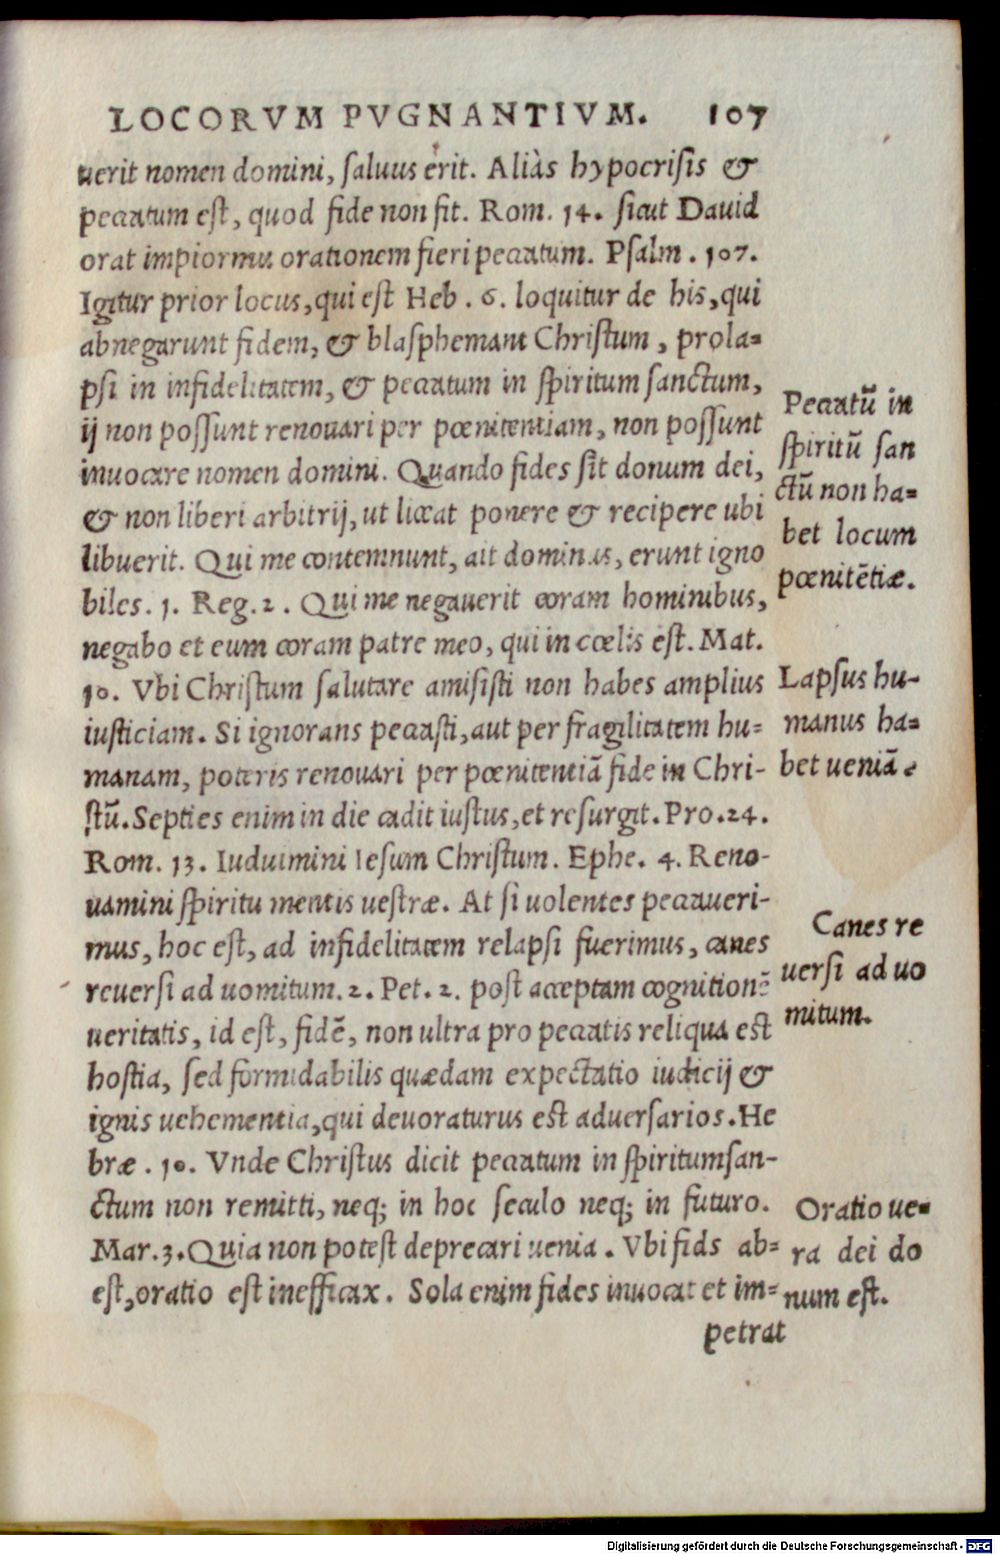 LOCORVM PVGNANTIVM. 107
uerit nomen domini, saluus erit. Aliàs hypocrisis &
peccatum est, quod fide non fit. Rom. 14. sicut Dauid
orat impiorum orationem fieri peccatum. Psalm. 107.
Igitur prior locus, qui est Heb. 6. loquitur de his, qui
abnegarunt fidem, & blasphemant Christum, prola=
psi in infidelitatem, & peccatum in spiritum sanctum,
ij non possunt renouari per pœnitentiam, non possunt
inuocare nomen domini. Quando fides sit donum dei,
& non liberi arbitrij, ut liceat ponere & recipere ubi
libuerit. Qui me contemnunt, ait dominus, erunt igno
biles. 1. Reg. 2. Qui me negauerit coram hominibus,
negabo et eum coram patre meo, qui in cœlis est. Mat.
10. Vbi Christum salutare amisisti non habes amplius
iusticiam. Si ignorans peccasti, aut per fragilitatem hu=
manam, poteris renouari per pœnitentiã fide in Chri-
stũ. Septies enim in die cadit iustus, et resurgit. Pro. 24.
Rom. 13. Induimini Iesum Christum. Ephe. 4. Reno-
uamini spiritu mentis uestræ. At si uolentes peccaueri-
mus, hoc est, ad infidelitatem relapsi fuerimus, canes
reuersi ad uomitum. 2. Pet. 2. post acceptam cognitionẽ
ueritatis, id est, fidẽ, non ultra pro peccatis reliqua est
hostia, sed formidabilis quædam expectatio iudicij &
ignis uehementia, qui deuoraturus est aduersarios. He
bræ. 10. Vnde Christus dicit peccatum in spiritumsan-
ctum non remitti, neq; in hoc seculo neq; in futuro.
Mar. 3. Quia non potest deprecari uenia. Vbi fids ab=
est, oratio est inefficax. Sola enim fides inuocat et im=
petrat
Peccatũ in
spiritũ san
ctũ non ha=
bet locum
pœnitẽtiæ.
Lapsus hu-
manus ha=
bet ueniã.
Canes re
uersi ad uo
mitum.
Oratio ue=
ra dei do
num est.
Digitalisierung gefördert durch die Deutsche Forschungsgemeinschaft - DFG